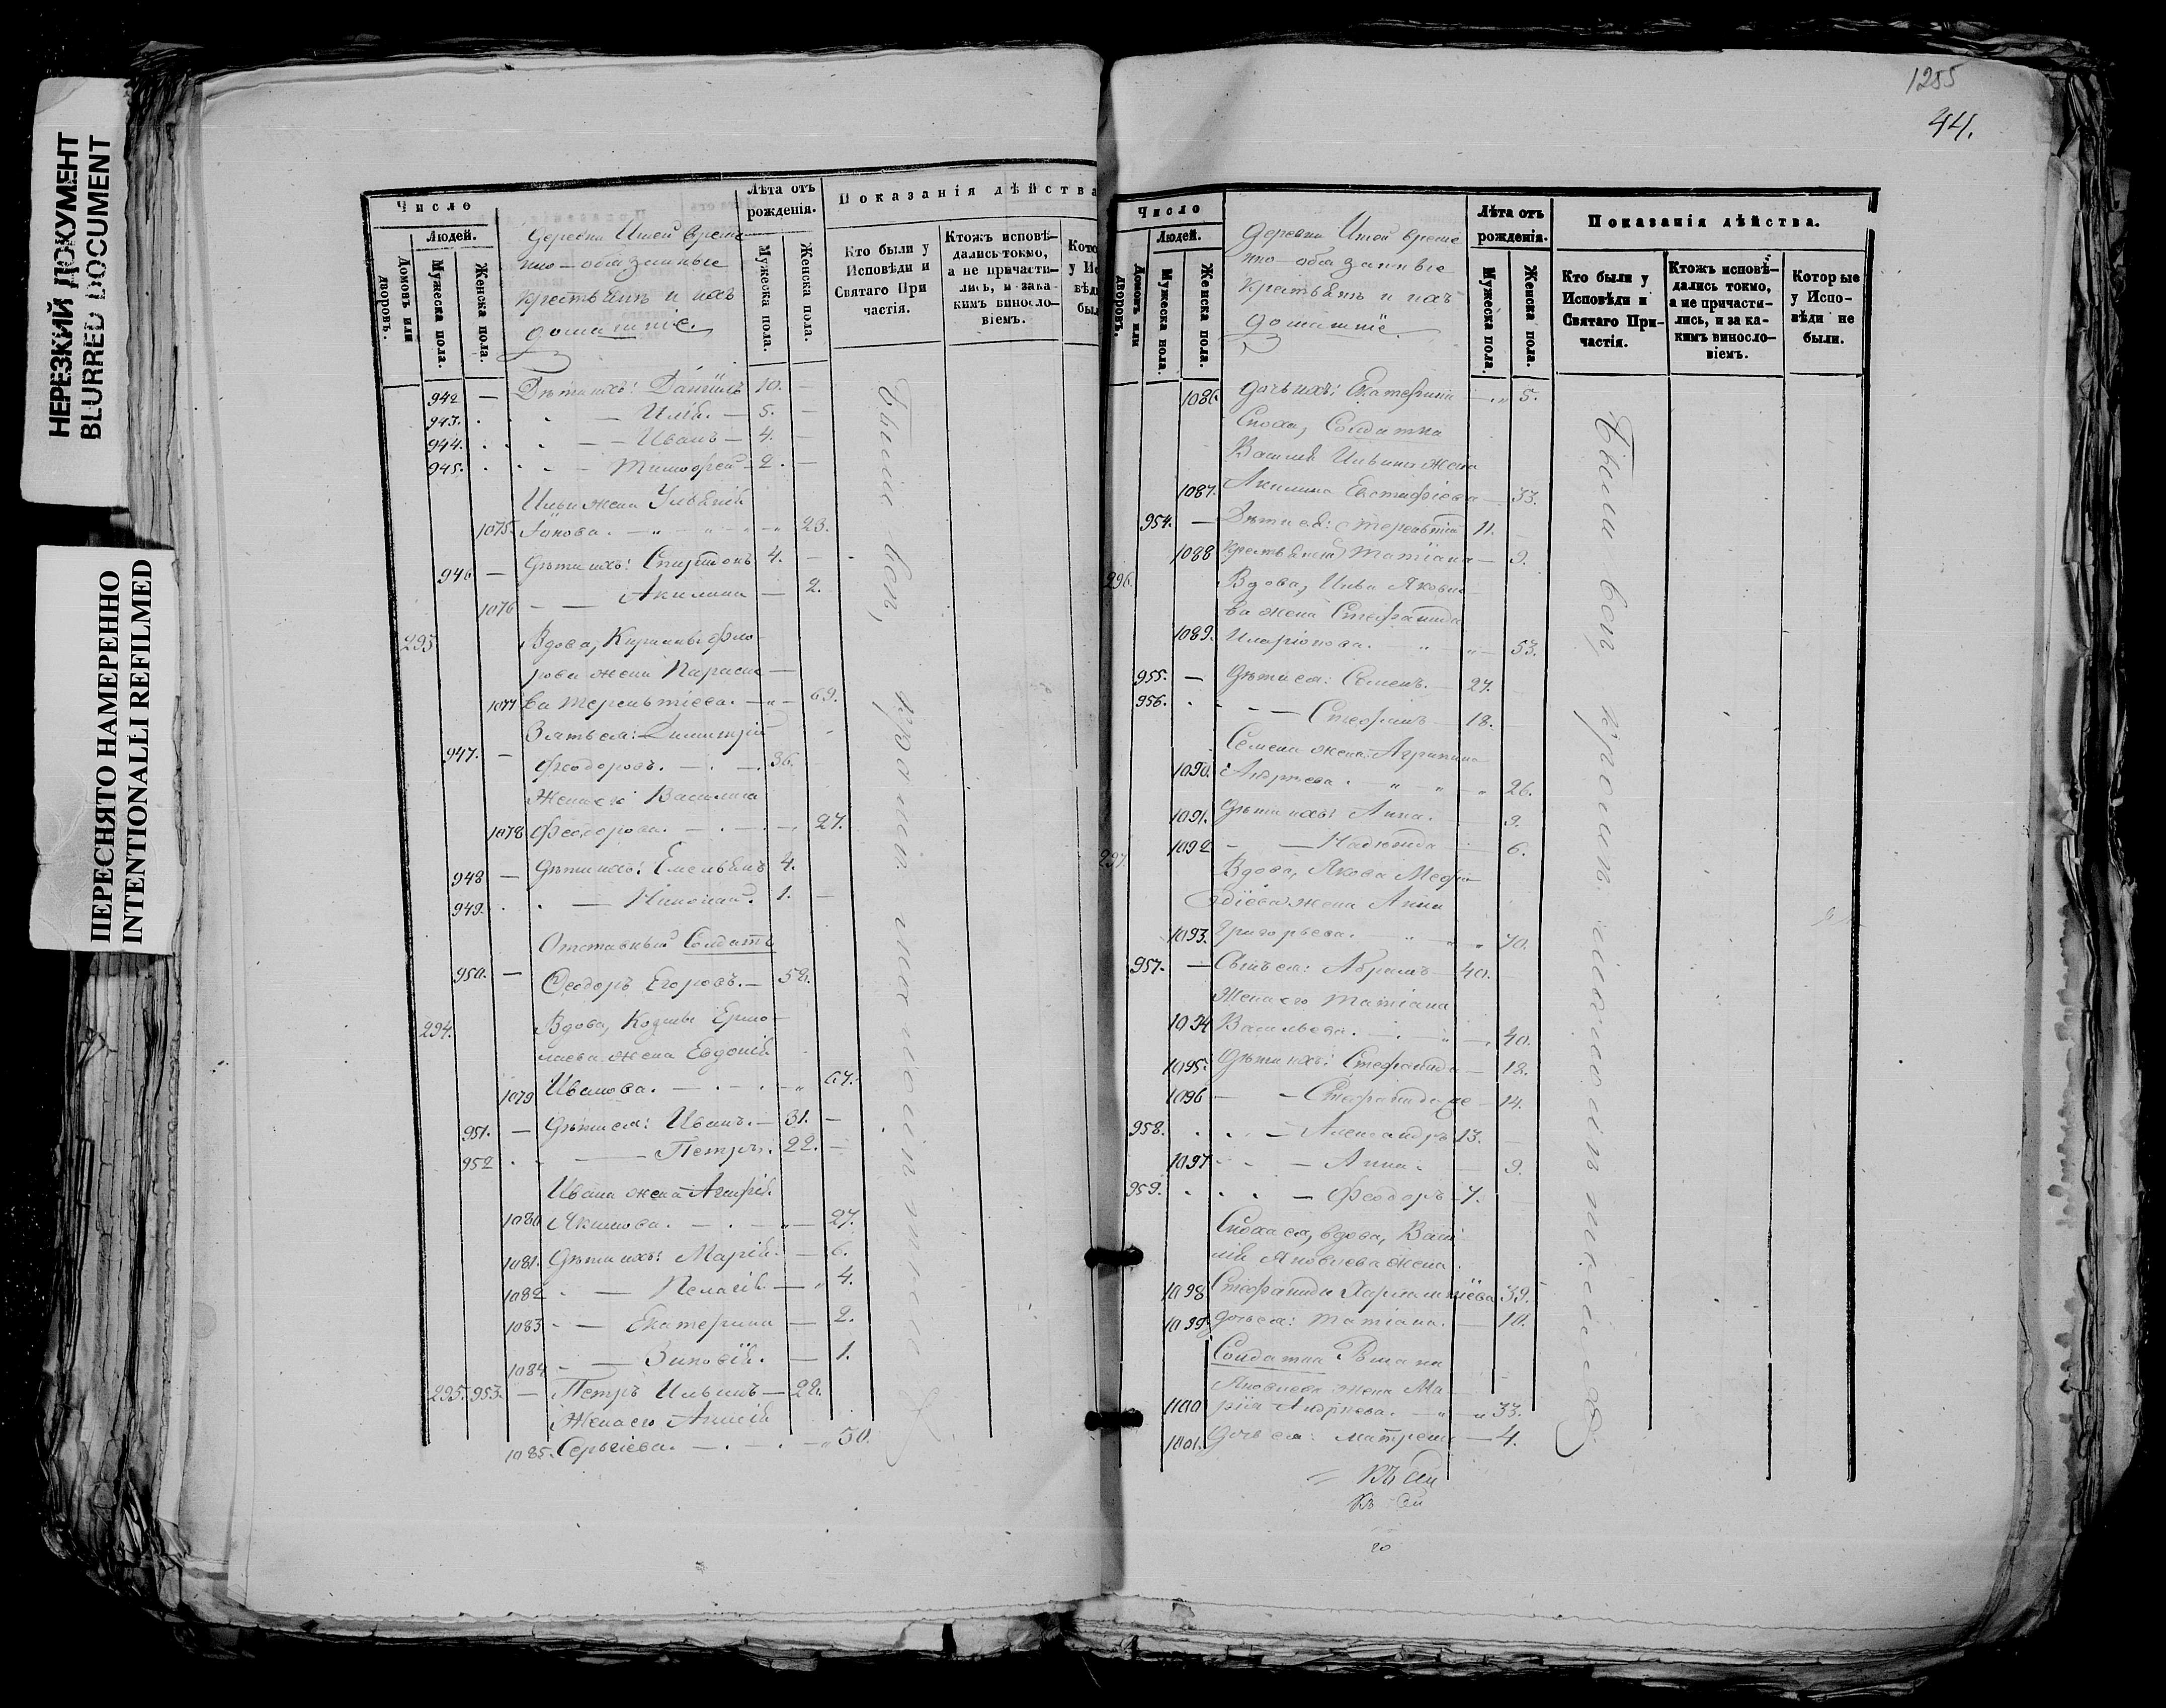 НЕРЕЗКИЙ ДОКУМЕНТ
BLURRED DOCUMENT
ПЕРЕСНЯТО НАМЕРЕННО
INTENTIONALLI REFILMED
Число
Людей.
Домовъ или дворовъ.
Мужеска пола.
Женска пола.
Деревни време
нно-обязанные
крестьяне и ихъ
домашніе.
Лѣта отъ рожденія.
Мужеска пола.
Женска пола.
Показанія дѣйства
Кто были у Исповѣди и Святаго При частія.
Ктожъ исповѣ-дались токмо, а не причасти-лись, и зака-кимъ винослo-віемъ.
942 — Дѣти ихъ: Даніилъ 10. —
943. — Илія. — 5. —
944. — Иванъ — 4. —
945. — Тимофей — 2. —
Ильи жена Ульянія
1075. 23.
946 — Дѣти ихъ: Спиридонъ 4. —
1076 — Акилина — 2.
293 Вдова, Фло-
рова жена Параске-
1077 ва Терентіева. — 69.
Зять ея: Димитрій
947. — Феодоровъ. — 36.
Жена его Василиса
1078 Феодорова. — 27.
948 — Дѣти ихъ: Емельянъ 4.
949. — Николай. 1. —
Отставный Солдатъ
950. — Феодоръ Егоровъ. — 58.
294. Вдова, Козьмы Ермо-
лаева жена Евдокія
1079 Иванова. — 67.
951. — Дѣти ея: Иванъ. — 31. —
952 — Петръ. 22. —
Ивана жена
1080 Якимова. — 27.
1081. Дѣти ихъ: Марія. — 6.
1082 — Пелагія — 4.
1083 — Екатерина — 2.
1084 — Зиновія. — 1.
295. 953. — Петръ Ильинъ — 28.
Жена его Анисія
1085. Сергіева. — 30.
Были вси,
1255
44.
Число
Людей.
Домовъ или дворовъ.
Мужеска пола.
Женска пола.
Деревни време
нно-обязанные
крестьяне и ихъ
домашніе
Лѣта отъ рожденія.
Мужеска пола.
Женска пола.
Показанія дѣйства.
Кто были у Исповѣди и Святаго При-частія.
Ктожъ исповѣ-дались токмо, а не причасти-лись, и за ка-кимъ виносло-віемъ.
Которые у Испо-вѣди не были.
1086. дочь ихъ: Екатерина — 5.
Сноха, Солдатка
Василія Ильина жена
1087. Акилина Евстафіева — 33.
954. — Дѣти ея: Терентій 11.
1088 Татіана — 9.
296. Вдова, Ильи Яковле-
ва жена Стефанида
1089. Иларіонова. — 53.
955. — Дѣти ея: Семенъ. — 27.
956. — Стефанъ — 18.
Семена жена Агрипина
1090. Андреева. — 26.
1091. Дѣти ихъ: Анна. 9.
1092 — Надежда 6.
297. Вдова, Якова Мефо-
діева жена Анна
1093. Григорьева. — 70.
957. — Сынъ ея: Абрамъ — 40.
Жена его Татіана
1094 Васильева. — 40.
1095. Дѣти ихъ: Стефанида — 18.
1096 — Стефанида же — 14.
958. — Александръ 13. —
1097 — Анна. — 9.
959. — Феодоръ — 7.
Сноха ея, вдова, Васи-
лія Яковлева жена
1098 Стефанида Харлампіева 39.
1099 дочь ея: Татіана. — 10.
Солдатка Романа
Яковлева жена Ма-
1100 рія Андреева. — 33.
1101. Дочь ея: Матрена — 4.
Были вси,